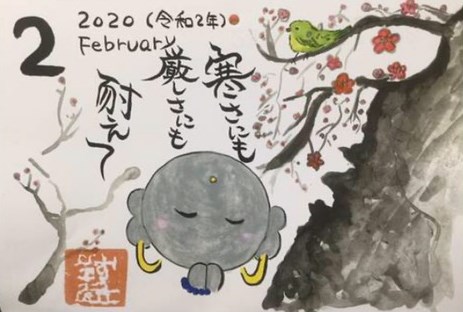 2
2020(令和2年)
February
寒さにも
厳しさにも
耐えて